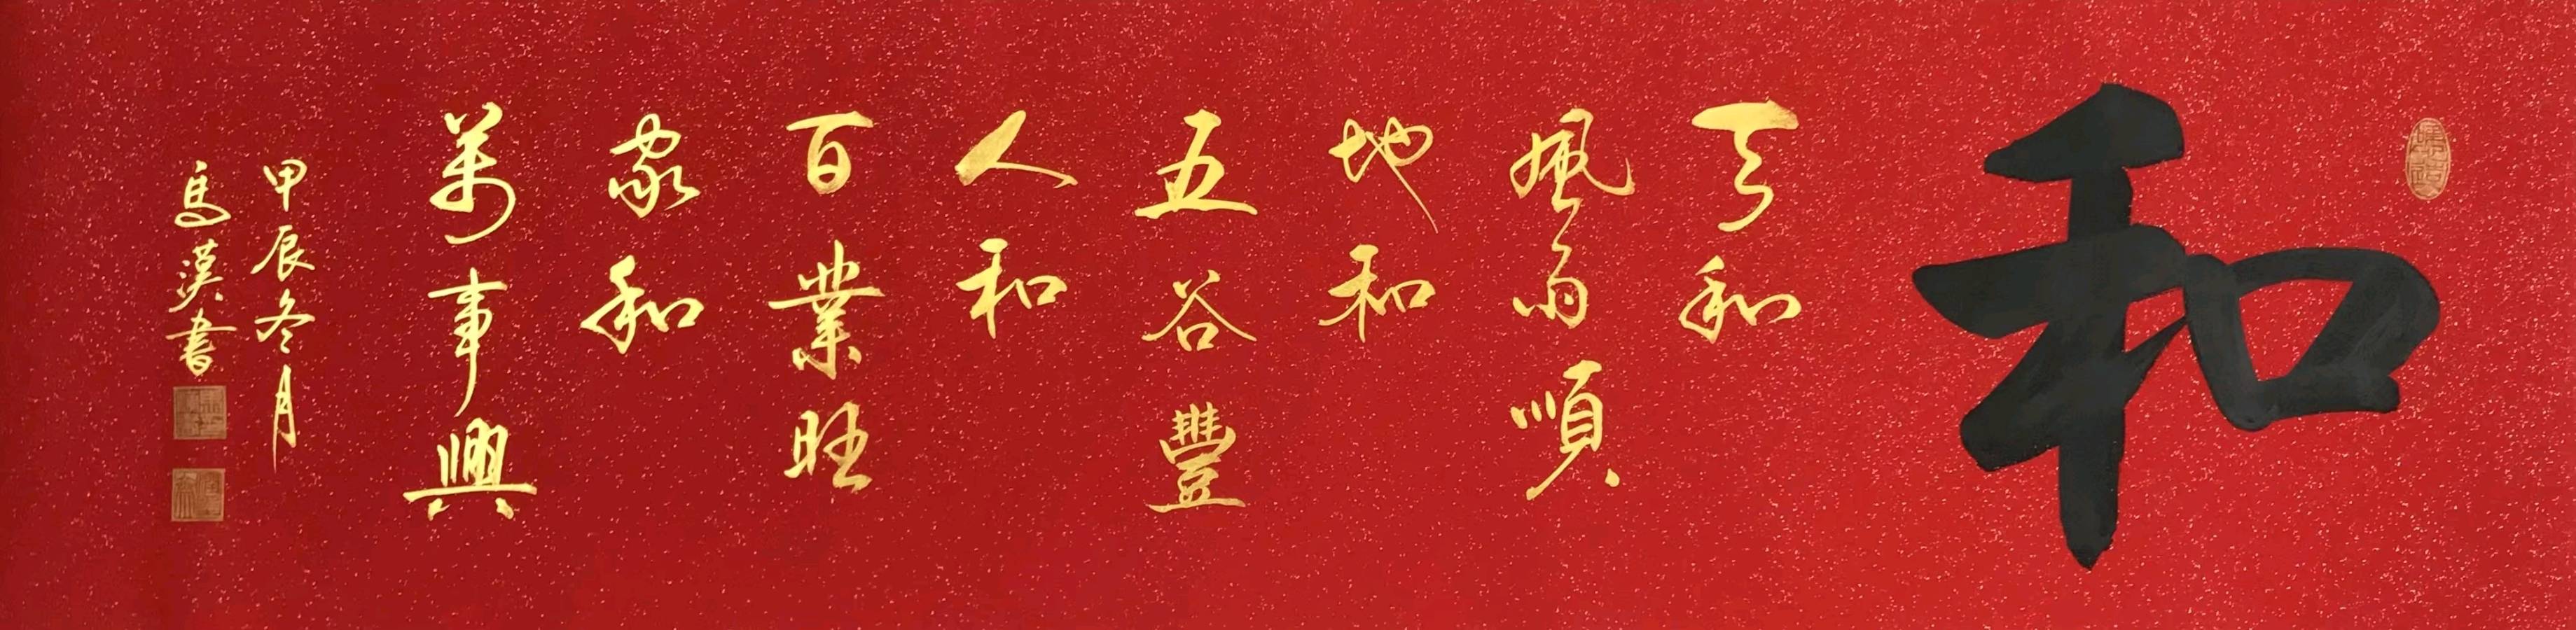 和
天和
風雨順
地和
五谷豐
人和
百業旺
家和
萬事興
甲辰冬月
馬漢书